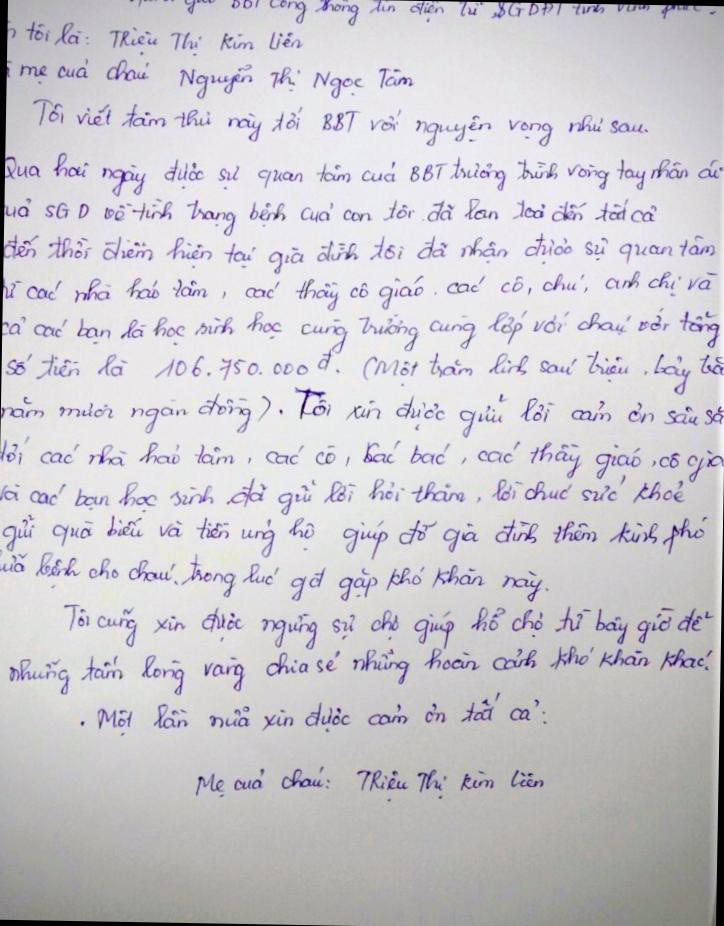 gửi BBT cổng thông tin điện tử SGDĐT tỉnh vĩnh phúc.
tôi là: Triệu Thị Kim Liên
mẹ của cháu Nguyễn Thị Ngọc Tâm
Tôi viết tâm thư này tới BBT với nguyện vọng như sau.
Qua hai ngày được sự quan tâm của BBT trương trình vòng tay nhân ái
SGD về tình trạng bệnh của con tôi đã lan toả đến tất cả
đến thời điểm hiện tại gia đình tôi đã nhận được sự quan tâm
từ các nhà hảo tâm, các thầy cô giáo, các cô, chú, anh chị và
cả các bạn là học sinh học cùng trường cùng lớp với cháu với tổng
số tiền là 106.750.000đ. (Một trăm linh sáu triệu, bảy tră
năm mươi ngàn đồng). Tôi xin được gửi lời cảm ơn sâu sắ
tới các nhà hảo tâm, các cô, các bác, các thầy giáo, cô giá
và các bạn học sinh đã gửi lời hỏi thăm, lời chúc sức khoẻ
gửi quà biếu và tiền ủng hộ giúp đỡ gia đình thêm kinh phó
bệnh cho cháu. trong lúc gđ gặp khó khăn này.
Tôi cũng xin được ngừng sự chợ giúp hỗ chợ từ bây giờ để
những tấm lòng vàng chia sẻ những hoàn cảnh khó khăn khác.
. Một lần nữa xin được cảm ơn tất cả:
Mẹ của cháu: Triệu Thị Kim Liên